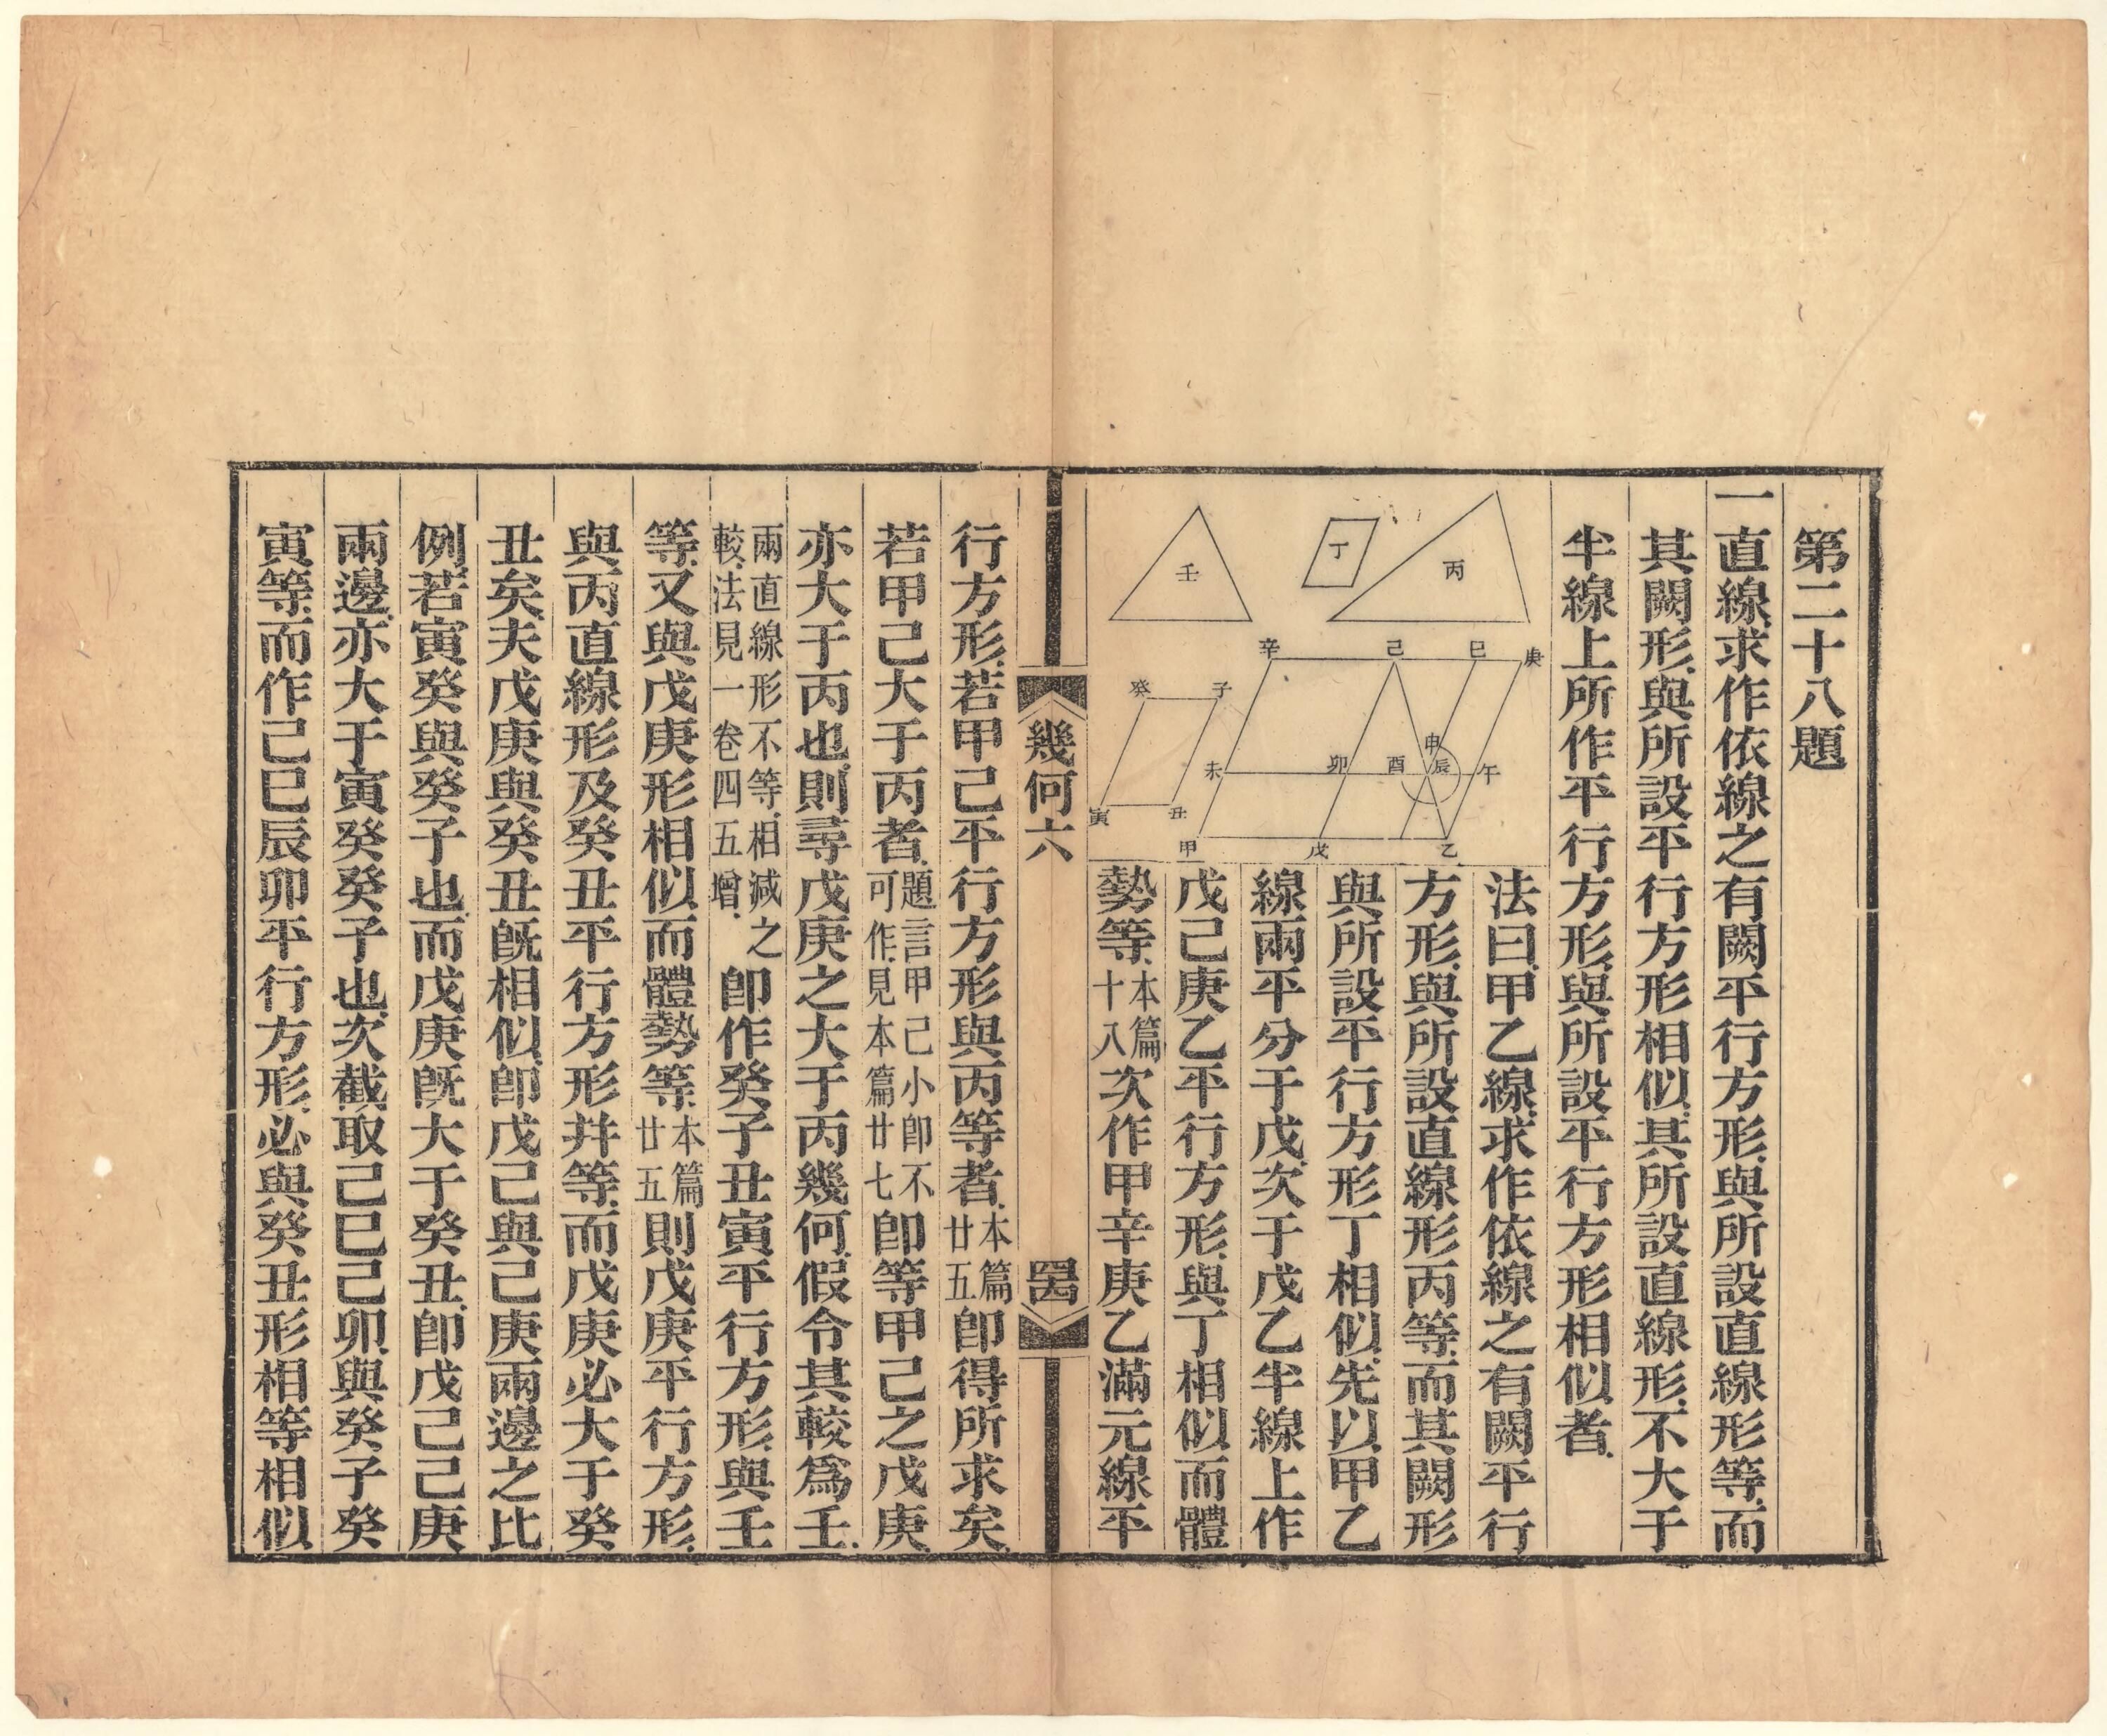 第二十八題
一直線求作依線之有闕平行方形與所設直線形等而
其闕形與所設平行方形相似其所設直線形不大于
半線上所作平行方形與所設平行方形相似者
壬
丁
丙
辛
己
巳
庚
癸
子
未
卯
酉
申
辰
午
寅
丑
甲
戊
乙
法曰甲乙線求作依線之有闕平行
方形與所設直線形丙等而其闕形
與所設平行方形丁相似先以甲乙
線兩平分于戊次于戊乙半線上作
戊己庚乙平行方形與丁相似而體
勢等本篇十八次作甲辛庚乙滿元線平
幾何六
四四
行方形若甲己平行方形與丙等者本篇廿五即得所求矣
若甲己大于丙者題言甲己小即不可作見本篇廿七即等甲己之戊庚
亦大于丙也則尋戊庚之大于丙幾何假令其較為壬
兩直線形不等相減之較法見一卷四五增即作癸子丑寅平行方形與壬
等又與戊庚形相似而體勢等本篇廿五則戊庚平行方形
與丙直線形及癸丑平行方形并等而戊庚必大于癸
丑矣夫戊庚與癸丑既相似即戊己與己庚兩邊之比
例若寅癸與癸子也而戊庚既大于癸丑即戊己己庚
兩邊亦大于寅癸癸子也次截取己巳己卯與癸子癸
寅等而作己巳辰卯平行方形必與癸丑形相等相似